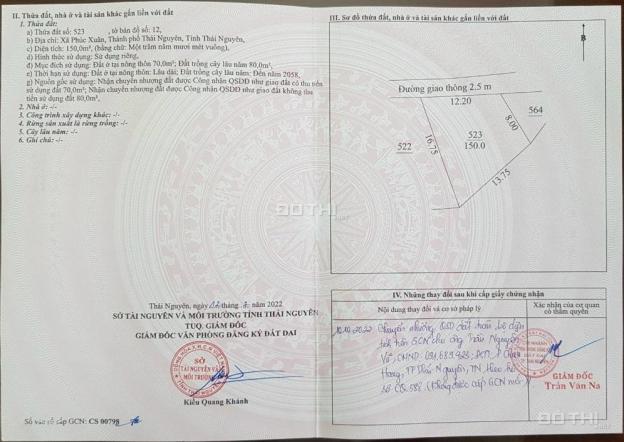 II. Thửa đất, nhà ở và tài sản khác gắn liền với đất
1. Thửa đất:
a) Thửa đất số: 523 , tờ bản đồ số: 12,
b) Địa chỉ: Xã Phúc Xuân, Thành phố Thái Nguyên, Tỉnh Thái Nguyên,
c) Diện tích: 150,0m², (bằng chữ: Một trăm năm mươi mét vuông),
d) Hình thức sử dụng: Sử dụng riêng,
đ) Mục đích sử dụng: Đất ở tại nông thôn 70,0m²; Đất trồng cây lâu năm 80,0m²,
e) Thời hạn sử dụng: Đất ở tại nông thôn: Lâu dài; Đất trồng cây lâu năm: Đến năm 2058,
g) Nguồn gốc sử dụng: Nhận chuyển nhượng đất được Công nhận QSDĐ như giao đất có thu tiền
sử dụng đất 70,0m²; Nhận chuyển nhượng đất được Công nhận QSDĐ như giao đất không thu
tiền sử dụng đất 80,0m²,
2. Nhà ở: -/-
3. Công trình xây dựng khác: -/-
4. Rừng sản xuất là rừng trồng: -/-
5. Cây lâu năm: -/-
6. Ghi chú: -/-
Thái Nguyên, ngày tháng năm 2022
SỞ TÀI NGUYÊN VÀ MÔI TRƯỜNG TỈNH THÁI NGUYÊN
TUQ. GIÁM ĐỐC
GIÁM ĐỐC VĂN PHÒNG ĐĂNG KÝ ĐẤT ĐAI
SỞ
TÀI NGUYÊN VÀ
MÔI TRƯỜNG
Kiều Quang Khánh
Số vào sổ cấp GCN: CS 00798
III. Sơ đồ thửa đất, nhà ở và tài sản khác gắn liền với đất
Đường giao thông 2.5 m
12.20
564
8.00
16.75
522
523
150.0
13.75
ĐÔTHỊ
IV. Những thay đổi sau khi cấp giấy chứng nhận
Nội dung thay đổi và cơ sở pháp lý
Xác nhận của cơ quan
có thẩm quyền
10.10.2022 Chuyển nhượng QSD đất toàn bộ diện
tích trên GCN cho ông Trần Nguyên
GIÁM ĐỐC
Trần Văn Na